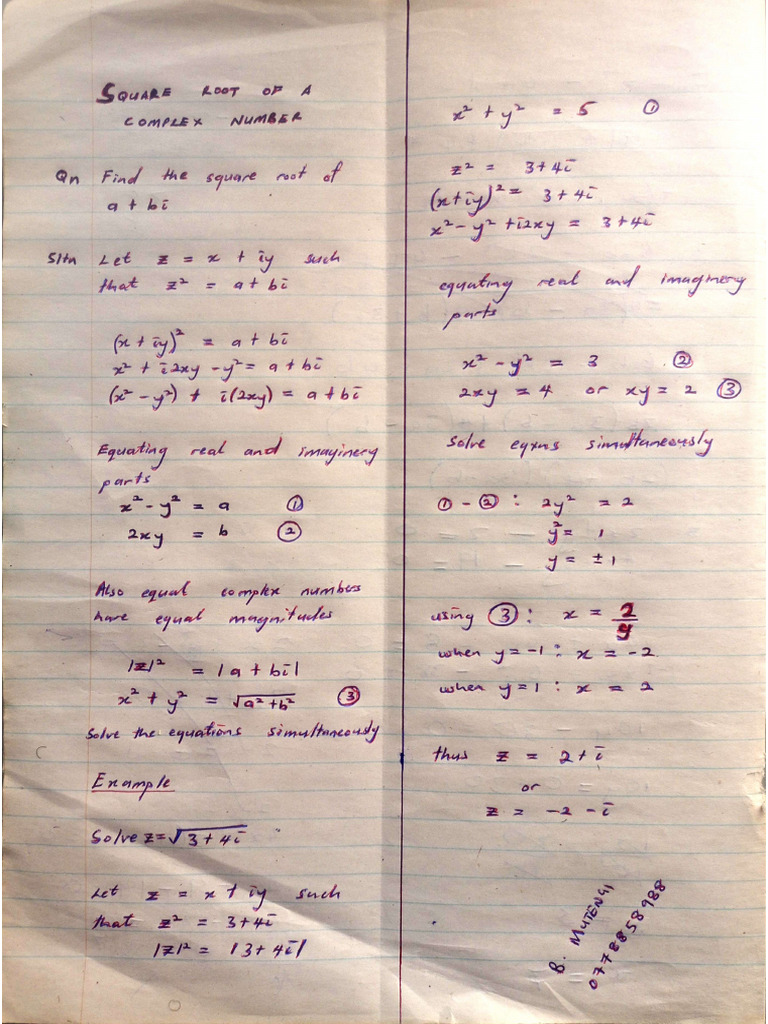 SQUARE ROOT OF A
COMPLEX NUMBER
Qn Find the square root of
a + bi
Sltn Let z = x + iy such
that z² = a + bi
(x + iy)² = a + bi
x² + i2xy - y² = a + bi
(x² - y²) + i(2xy) = a + bi
Equating real and imaginery
parts
x² - y² = a ①
2xy = b ②
Also equal complex numbers
have equal magnitudes
|z|² = |a + bi|
x² + y² = √(a² + b²) ③
Solve the equations simultaneously
Example
Solve z = √(3 + 4i)
Let z = x + iy such
that z² = 3 + 4i
|z|² = |3 + 4i|
x² + y² = 5 ①
z² = 3 + 4i
(x + iy)² = 3 + 4i
x² - y² + i2xy = 3 + 4i
equating real and imaginery
parts
x² - y² = 3 ②
2xy = 4 or xy = 2 ③
Solve eqxns simultaneously
① - ② : 2y² = 2
y² = 1
y = ±1
using ③ : x = 2/y
when y = -1 : x = -2
when y = 1 : x = 2
thus z = 2 + i
or
z = -2 - i
B. MUTENGI
0778858988